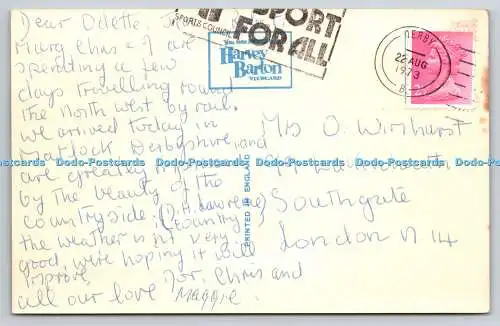 Dear Odette,
Chris + I are
spending a few
days travelling round
the North west by rail.
we arrived today in
Matlock Derbyshire, and
are greatly
by the beauty of the
countryside. (D.H. Lawrence
country)
the weather is not very
good, we're hoping it will
improve,
all our love for, Chris and
Maggie.
SPORT
SPORTS COUNCIL
FOR ALL
Harvey
Barton
VIEWCARD
PRINTED IN ENGLAND
DERBY
22 AUG
1973
Mrs O. Wimhurst
Southgate
London N 14
Dodo-Postcards Dodo-Postcards Dodo-Postcards Dodo-Postcards Dodo-Postcards